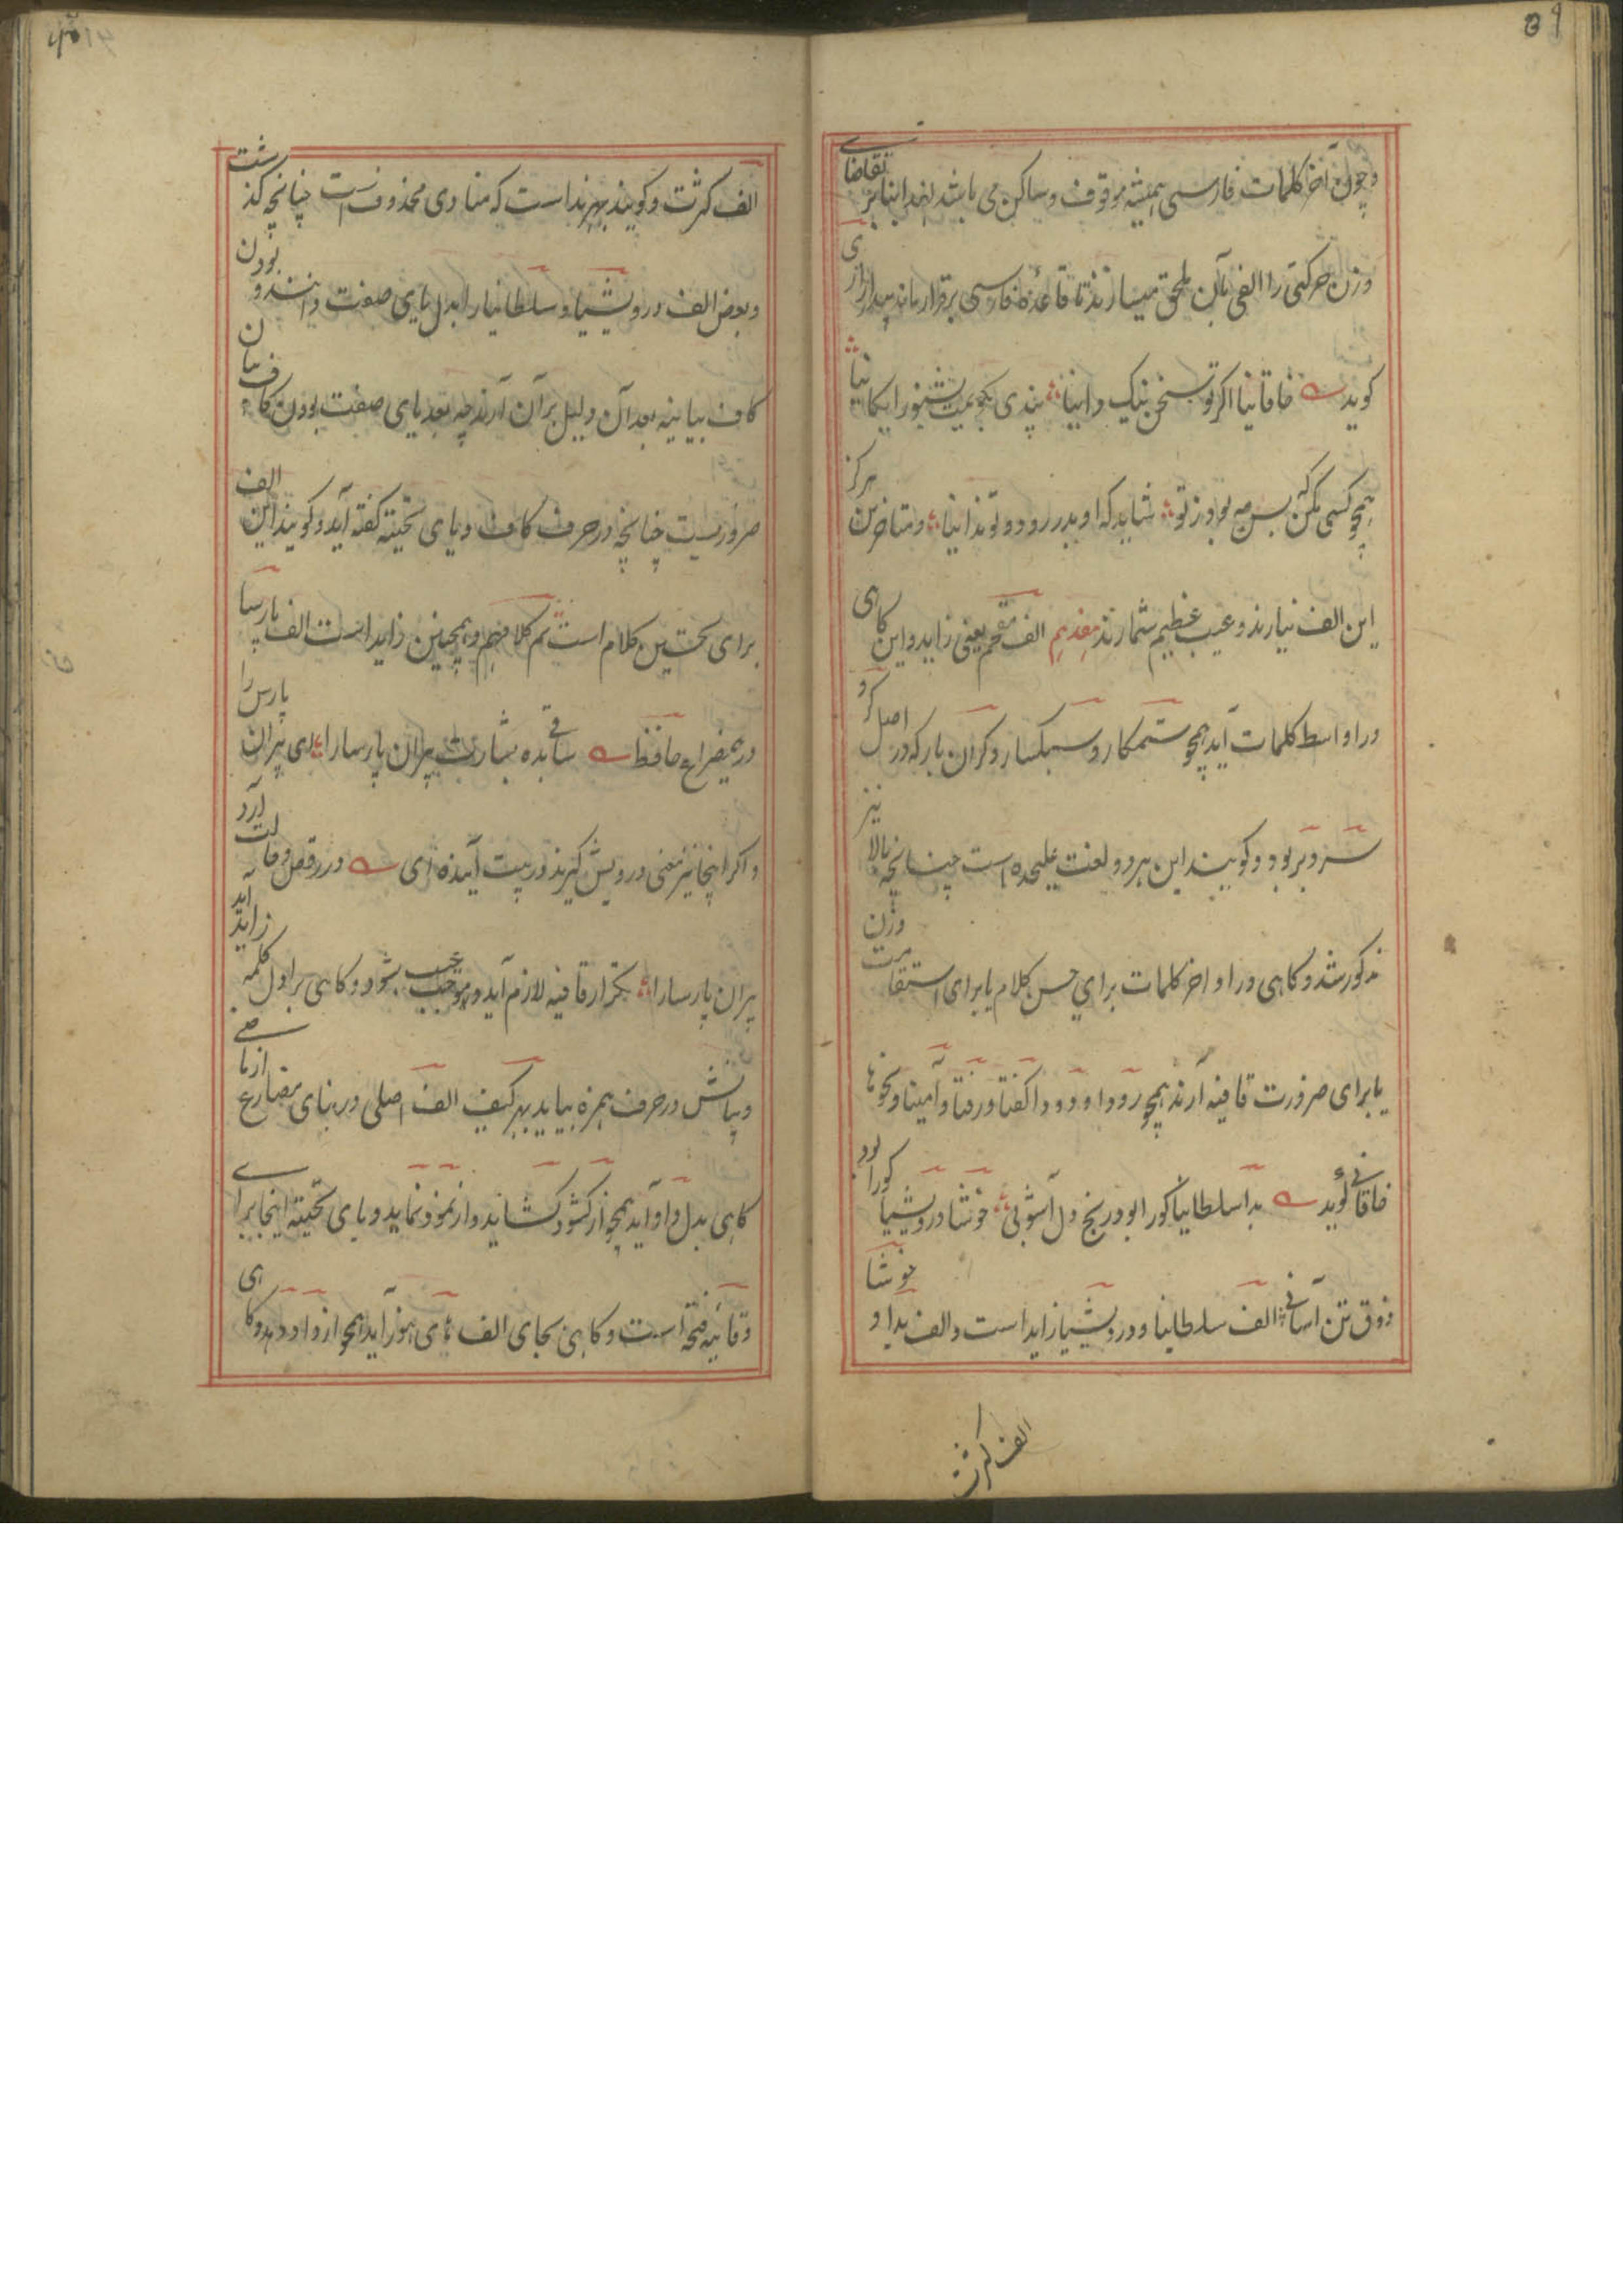 و چون آخر کلمات فارسی همیشه موقوف و ساکن می باشد لهذا بنابر تقاضای
وزن حرکتی را الفی بآن ملحق میسازند تا قاعده فارسی برقرار ماند
کوید خاقانیا اگر تو سخن نیک دانیا پندی بگویمت بشنو رایکانیا
همچو کسی مکن که بود ز تو شاید که او پدر بود و تو ندانیا و متاخرین هرکز
این الف نیارند و عیب عظیم شمارند الف مقحم یعنی زاید و این کاهی
در اواسط کلمات آید همچو ستمکار و سبکسار و کران بار که در اصل
سر و بر بود و کویند این هر دو لغت علیحده است چنانچه بالا نیز
مذکور شد و کاهی در اواخر کلمات برای حسن کلام یا برای استقامت وزن
یا برای ضرورت قافیه آرند همچو کفتا و رفتا و
خاقانی کوید بدا سلطانیا کورا بود رنج دل آشوبی خوشا درویشیا کورا بود
ذوق تن آسانی الف سلطانیا و درویشیا زاید است و الف بدا و خوشا
الف کثرت
الف کثرت و کویند بهر ندا است که منادی محذوف است چنانچه کذشت
و بعض الف درویشیا و سلطانیا را بدل یای صفت دانند و بودن
کاف بیانیه بعد آن دلیل بر آن آرند چه بعد یای صفت بودن کاف بیان
ضرور نیست چنانچه در حرف کاف و یای تحتیه کفته آید و کویند این الف
برای تحسین کلام است تم کلامهم و همچنین زاید است الف پارسا
درین مصراع حافظ ساقی بده بشارت پیران پارسا را ای پیران پارس را
و اکر اینجا نیز معنی درویش کیرند در بیت آینده ای در رقص و حالت آرد
پیران پارسا را تکرار قافیه لازم آید و موجب عیب شود و کاهی بر اول کلمه زاید آید
و بیانش در حرف همزه بیاید بهر کیف الف اصلی در بنای مضارع از ماضی
کاهی بدل واو آید همچو از کشود کشاید و از نمود نماید و یای تحتیه اینجا برای
وقایه فتحه است و کاهی بجای الف های هوز آید همچو از داد دهد و کاهی